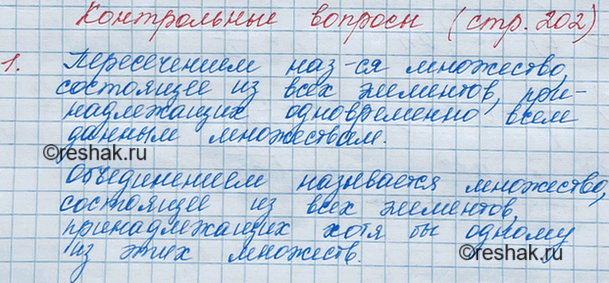 Контрольные вопросы (стр. 202)
1. Пересечением наз-ся множество,
состоящее из всех элементов, при-
надлежащих одновременно всем
данным множествам.
©reshak.ru
©reshak.ru
Объединением называется множество,
состоящее из всех элементов,
принадлежащих хотя бы одному
из этих множеств.